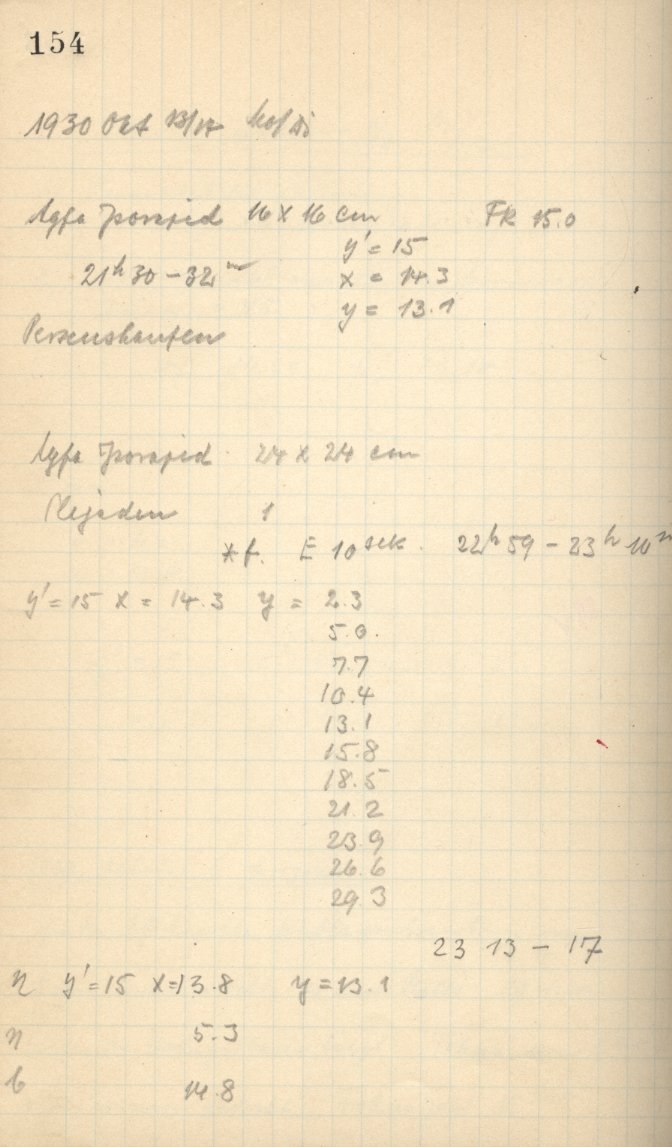 154
1930 Okt 13/14 Mo/Di
Agfa Isorapid 16 x 16 cm FR 15.0
y' = 15
21h 30 - 32m x = 14.3
y = 13.1
Perseushaufen
Agfa Isorapid 24 x 24 cm
Plejaden 1
*f. E 10 sek. 22h 59 - 23h 10m
y' = 15 x = 14.3 y = 2.3
5.0.
7.7
10.4
13.1
15.8
18.5
21.2
23.9
26.6
29.3
23 13 - 17
n y' = 15 x = 13.8 y = 13.1
n 5.3
b 14.8